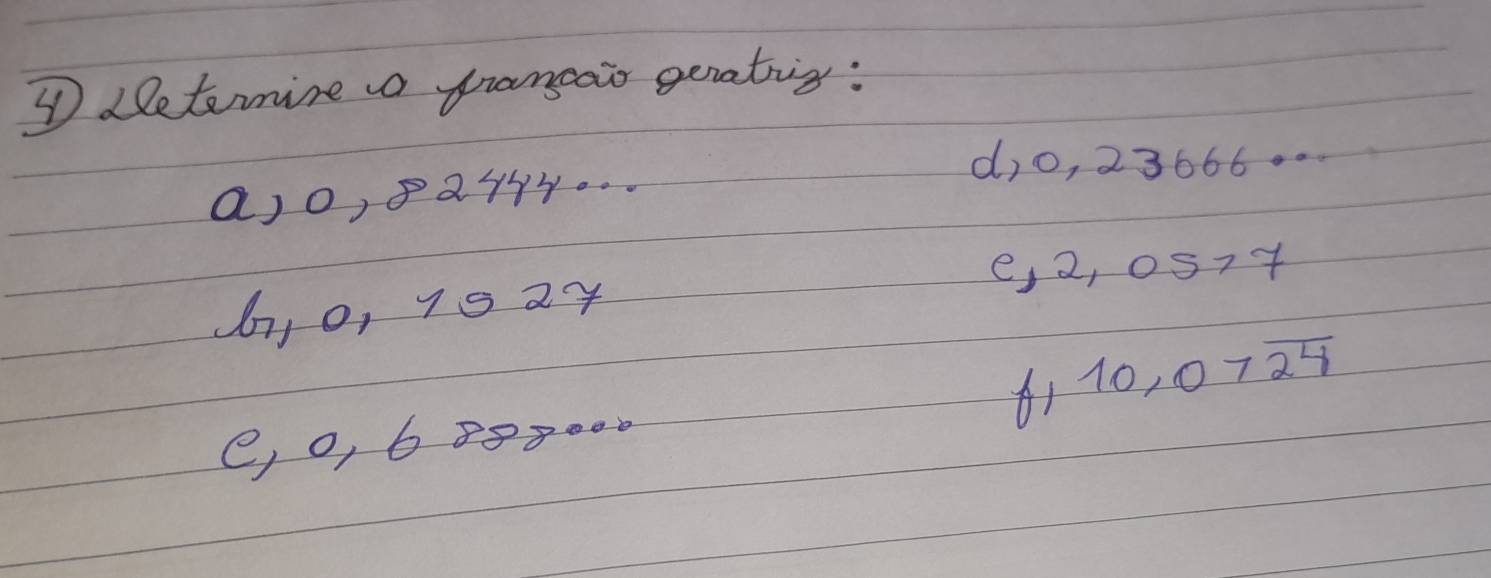 4) Determine a françcão geratriz:
a, 0,82444...
d, 0,23666...
b, 0,1527
e, 2,0577
c, 0,6888...
f, 10,07\overline{24}